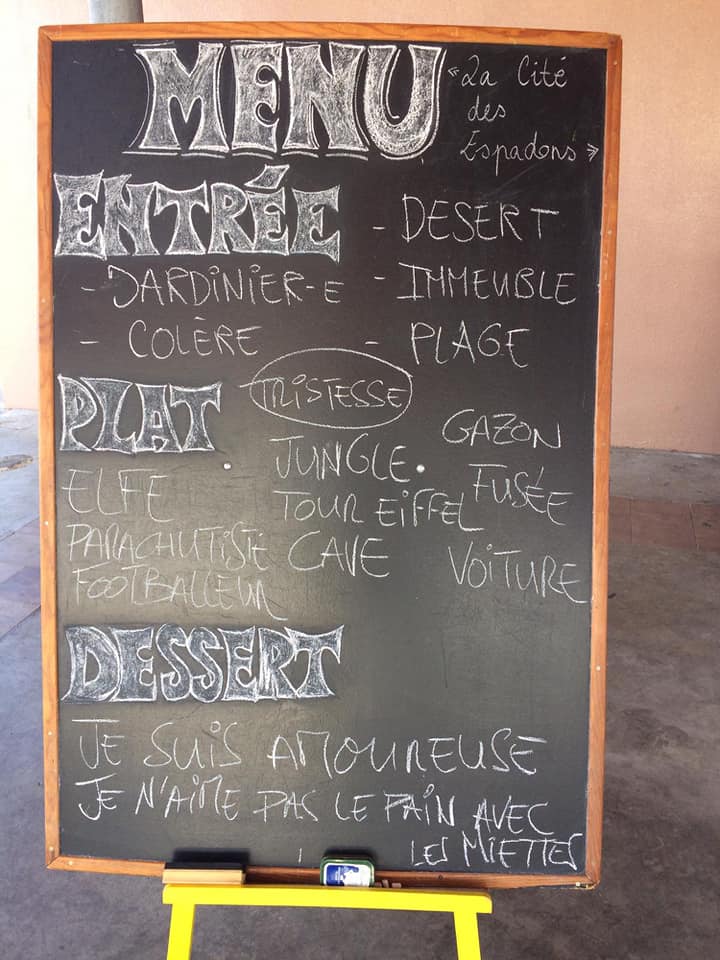 MENU
"La Cité
des
Espadons"
ENTRÉE
- JARDINIER-E
- COLÈRE
- DESERT
- IMMEUBLE
- PLAGE
PLAT
ELFE
PARACHUTISTE
FOOTBALLEUR
TRISTESSE
JUNGLE
TOUR EIFFEL
CAVE
GAZON
FUSÉE
VOITURE
DESSERT
JE SUIS AMOUREUSE
JE N'AIME PAS LE PAIN AVEC
LES MIETTES